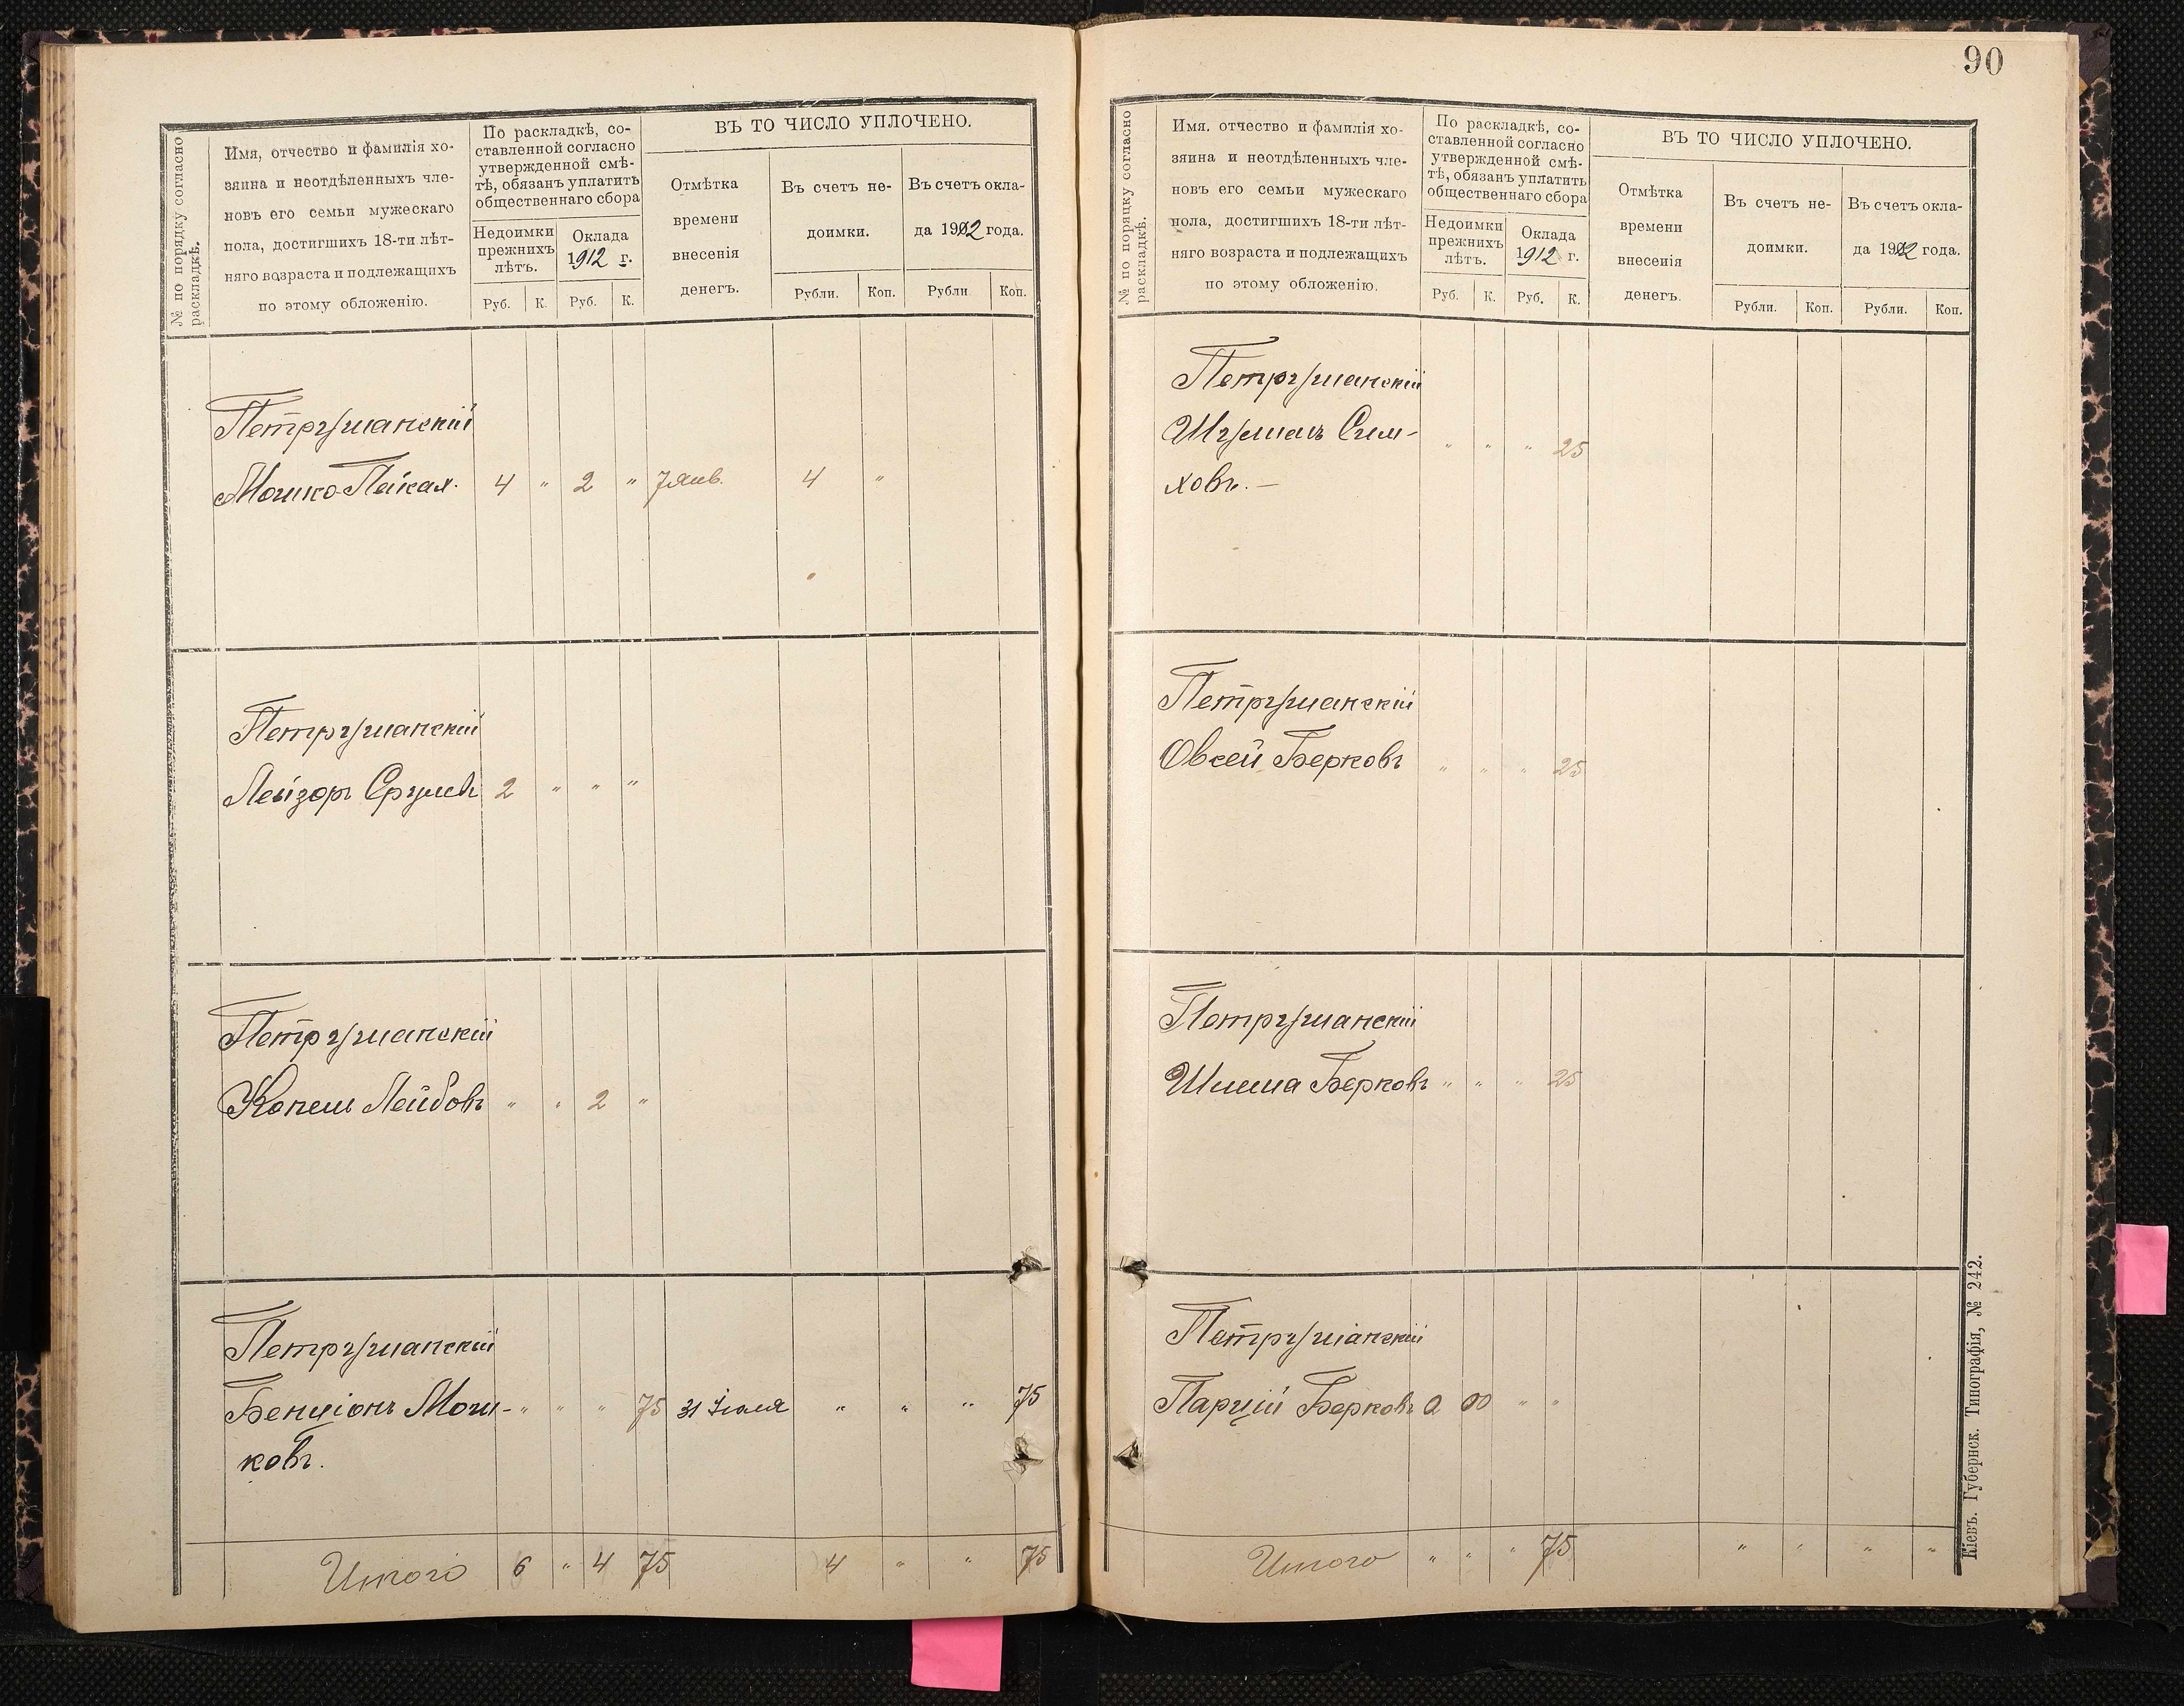 № по порядку согласно
раскладкѣ.
Имя, отчество и фамилія хо-
зяина и неотдѣленныхъ чле-
новъ его семьи мужескаго
пола, достигшихъ 18-ти лѣт-
няго возраста и подлежащихъ
по этому обложенію.
По раскладкѣ, со-
ставленной согласно
утвержденной смѣ-
тѣ, обязанъ уплатить
общественнаго сбора
Недоимки
прежнихъ
лѣтъ.
Оклада
1912 г.
Руб. К. Руб. К.
ВЪ ТО ЧИСЛО УПЛОЧЕНО.
Отмѣтка
времени
внесенія
денегъ.
Въ счетъ не-
доимки.
Рубли. Коп.
Въ счетъ окла-
да 1912 года.
Рубли Коп.
Петрушанскій
Мошко-Пейсах. 4 " 2 " 7 янв. 4 "
Петрушанскій
Лейзоръ Срулевъ 2 " " "
Петрушанскій
Копель Лейбовъ " " 2 "
Петрушанскій
Бенціонъ Мош- " " " 75 31 Іюля " " " 75
ковъ.
Итого 6 " 4 75 4 " " 75
90
№ по порядку согласно
раскладкѣ.
Имя. отчество и фамилія хо-
зяина и неотдѣленныхъ чле-
новъ его семьи мужескаго
пола, достигшихъ 18-ти лѣт-
няго возраста и подлежащихъ
по этому обложенію.
По раскладкѣ, со-
ставленной согласно
утвержденной смѣ-
тѣ, обязанъ уплатить
общественнаго сбора
Недоимки
прежнихъ
лѣтъ.
Оклада
1912 г.
Руб. К. Руб. К.
ВЪ ТО ЧИСЛО УПЛОЧЕНО.
Отмѣтка
времени
внесенія
денегъ.
Въ счетъ не-
доимки.
Рубли. Коп.
Въ счетъ окла-
да 1912 года.
Рубли. Коп.
Петрушанскій
Шулимъ Сим- " " " 25
ховъ. —
Петрушанскій
Овсей Берковъ " " " 25
Петрушанскій
Шлема Берковъ " " " 25
Петрушанскій
Берковъ " "
Итого " " " 75 " " " "
Кіевъ. Губернск. Типографія, № 242.